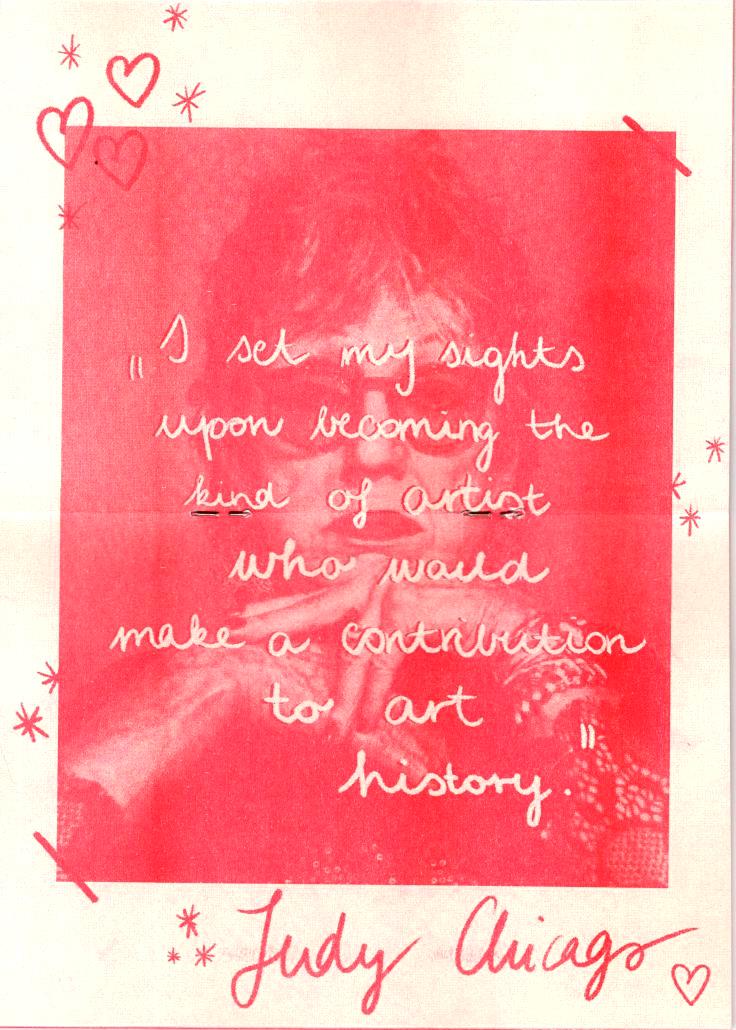 „I set my sights
upon becoming the
kind of artist
who would
make a contribution
to art
history."
Judy Chicago